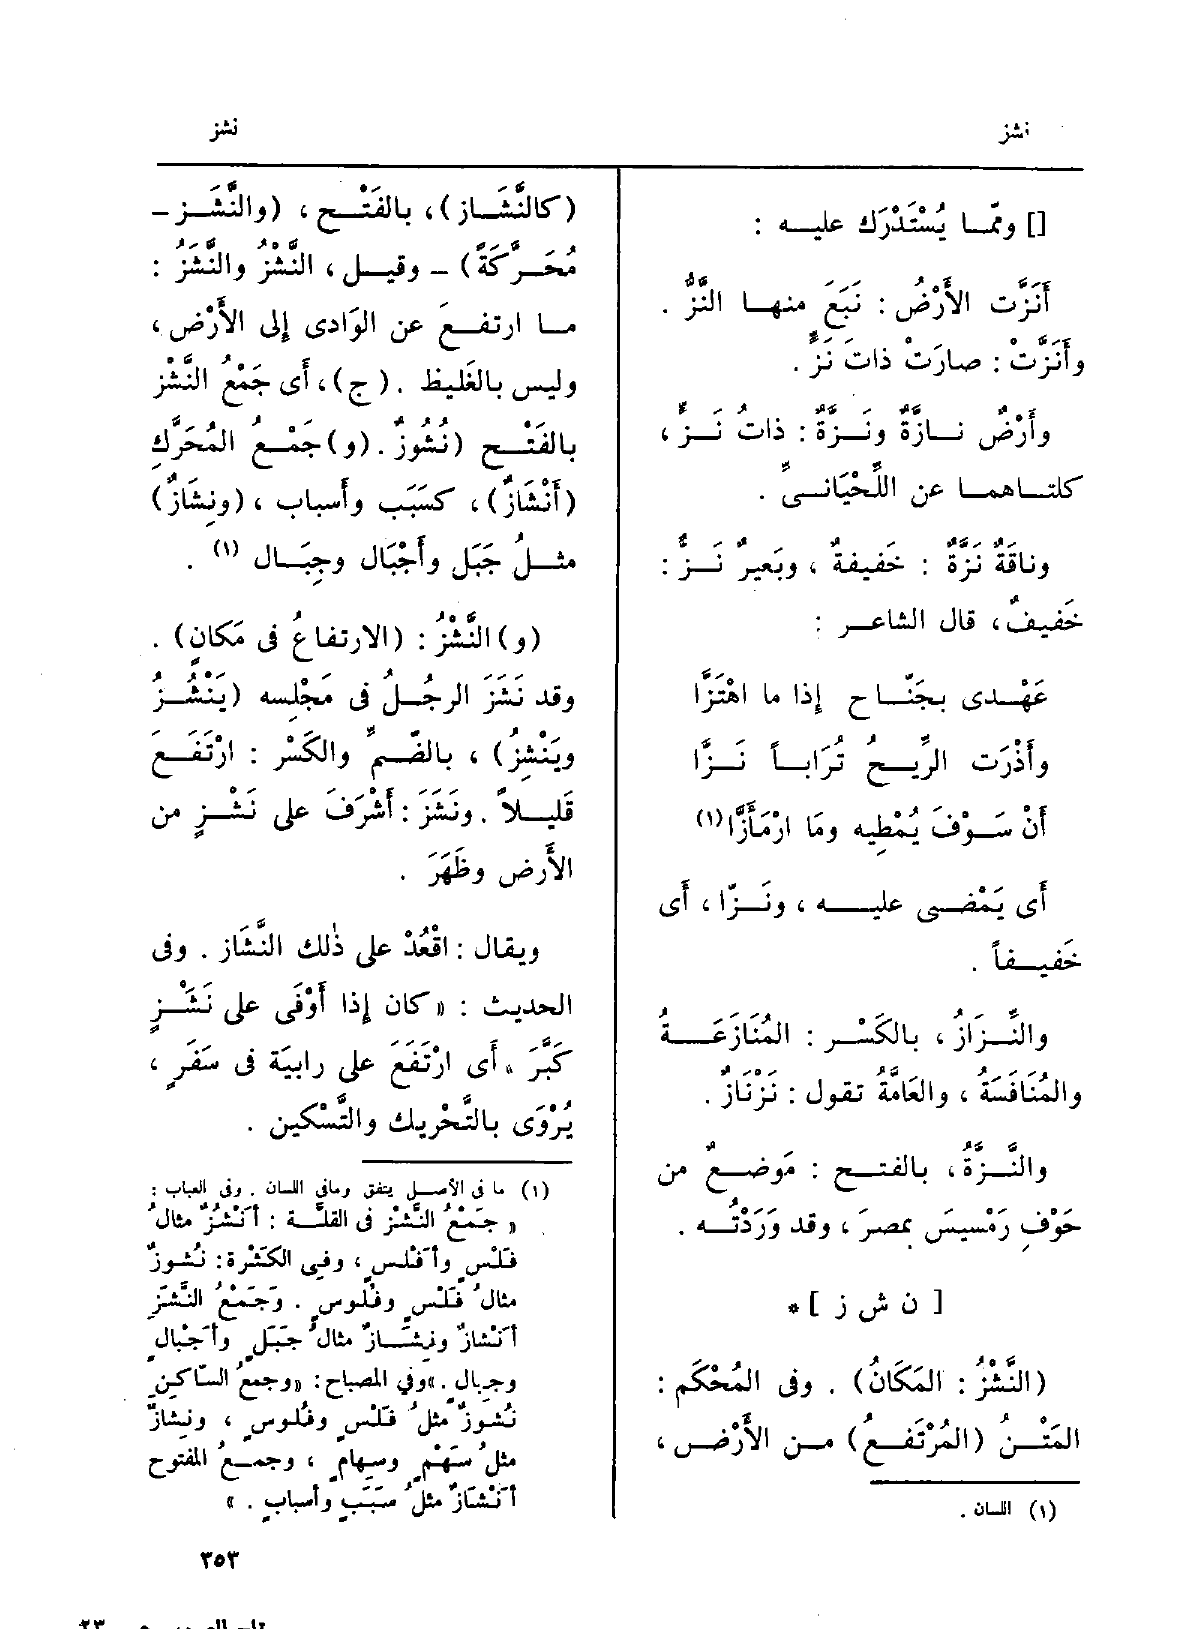 نشز
نشز
[] وممّا يُسْتَدْرَك عليه :
أَنَزَّت الأَرْضُ : نَبَعَ منها النَّزُّ .
وأَنَزَّتْ : صارَتْ ذاتَ نَزٍّ .
وأَرْضٌ نازَّةٌ ونَزَّةٌ : ذاتُ نَزٍّ ،
كلتاهما عن اللِّحْيَانىّ .
وناقَةٌ نَزَّةٌ : خَفيفةٌ ، وبَعيرٌ نَزٌّ :
خَفيفٌ ، قال الشاعر :
عَهْدى بجَنّاح إذا ما اهْتَزَّا
وأَذْرَت الرِّيحُ تُرَاباً نَزَّا
أَنْ سَوْفَ يُمْطِيه ومَا ارْمَأَزَّا (١)
أَى يَمْضى عليه ، ونَزّا ، أَى
خَفيفاً .
والنِّزازُ ، بالكَسْر : المُنَازَعَةُ
والمُنَافَسَةُ ، والعَامَّةُ تقول : نَزْنَازٌ .
والنَّزَّةُ ، بالفتح : مَوضعٌ من
حَوْفِ رَمْسيسَ بمصرَ ، وقد وَرَدْتُه .
[ ن ش ز ] *
(النَّشْزُ : المَكَانُ) . وفى المُحْكَم :
المَتْنُ (المُرْتَفعُ) من الأَرْض ،
(١) اللسان .
(كالنَّشَاز) ، بالفَتْح ، (والنَّشَز -
مُحَرَّكَةً) - وقيل ، النَّشْزُ والنَّشَزُ :
ما ارتفعَ عن الوَادى إلى الأَرْض ،
وليس بالغَليظ . (ج) ، أَى جَمْعُ النَّشْز
بالفَتْح (نُشُوزٌ . (و) جَمْعُ المُحَرَّكِ
(أَنْشَازٌ) ، كسَبَب وأَسباب ، (ونِشَازٌ)
مثلُ جَبَل وأَجْبَال وجِبَال (١) .
(و) النَّشْزُ : (الارتفاعُ فى مَكانٍ) .
وقد نَشَزَ الرجُلُ فى مَجْلِسه (يَنْشُزُ
ويَنْشِزُ) ، بالضَّمِّ والكَسْر : ارْتَفَعَ
قَليلاً . ونَشَزَ : أَشْرَفَ على نَشْزٍ من
الأَرض وظَهَرَ .
ويقال : اقْعُدْ على ذٰلك النَّشَاز . وفى
الحديث : «كان إذا أَوْفَى على نَشَْزٍ
كَبَّرَ » أَى ارْتَفَعَ على رابيَة فى سَفَرٍ ،
يُرْوَى بالتَّحْريك والتَّسْكين .
(١) ما فى الأصل يتفق ومافى اللسان . وفى العباب :
« جَمْعُ النَّشْز فى القلَّة : أَنْشُزٌ مثالُ
فَلْسٍ وأَفْلُسٍ ، وفى الكَثْرة : نُشُوزٌ
مثالُ فَلْسٍ وفُلُوسٍ . وجَمْعُ النَّشَزِ
أَنْشازٌ ونِشَازٌ مثالُ جَبَلٍ وأَجْبالٍ
وجِبالٍ .» وفي المصباح : «وجمعُ السّاكِنِ
نُشُوزٌ مثلُ فَلْسٍ وفُلُوسٍ ، ونِشازٌ
مثلُ سَهْمٍ وسِهامٍ ، وجمعُ المفتوح
أَنْشَازٌ مثلُ سَبَبٍ وأَسبابٍ . »
٣٥٣